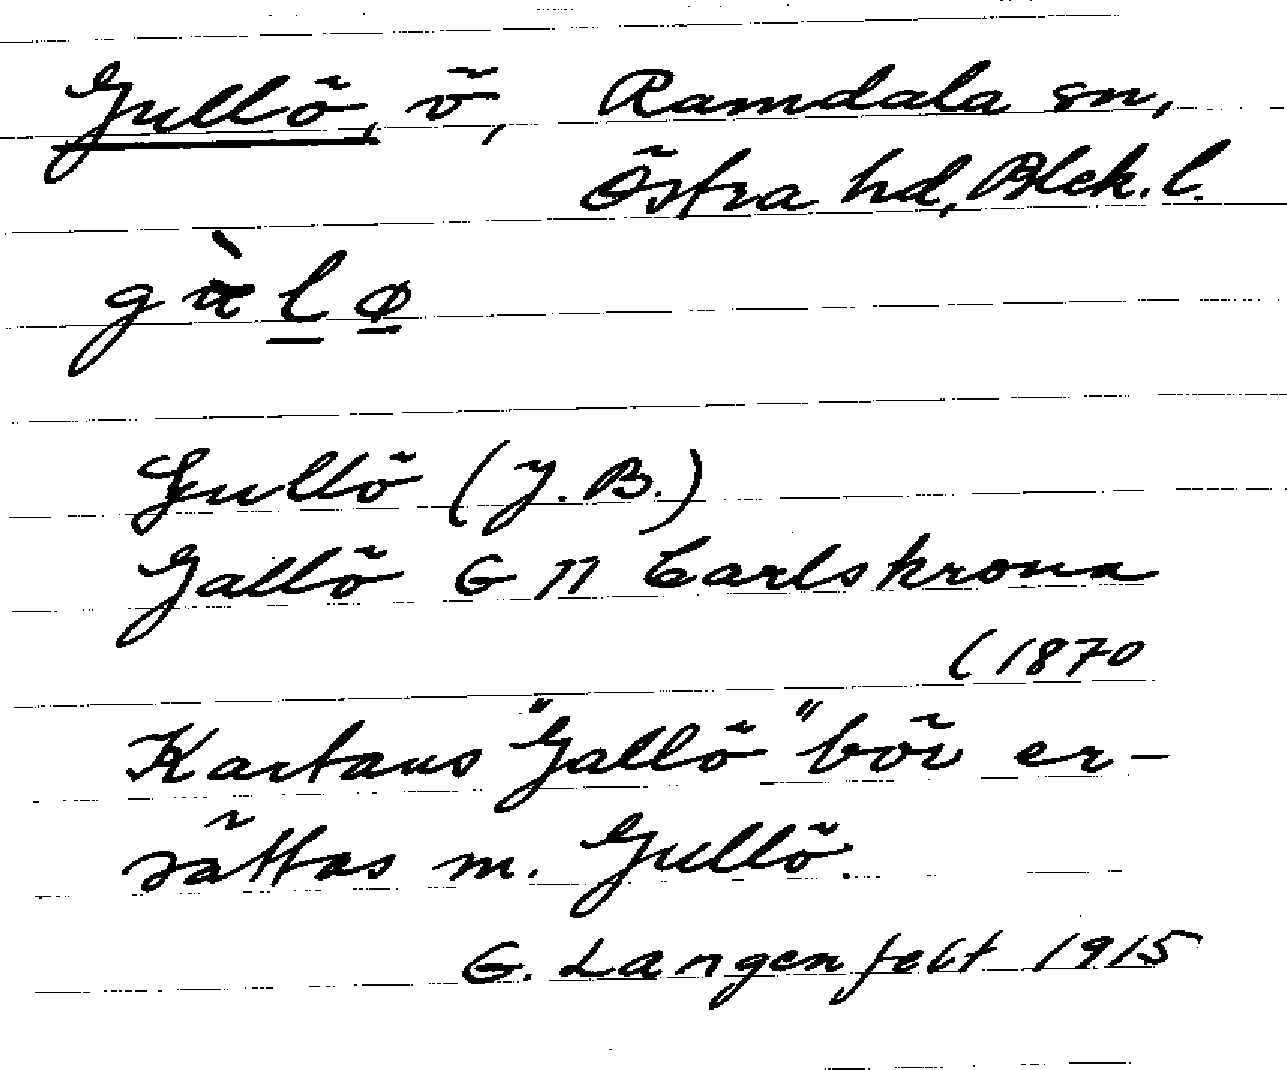 Gullö, ö, Ramdala sn,
Östra hd, Blek. l.
Gullö (J. B.)
Gallö G N Carlskrona
(1870
Kartans "Gallö" bör er-
sättas m. Gullö.
G. Langenfelt 1915